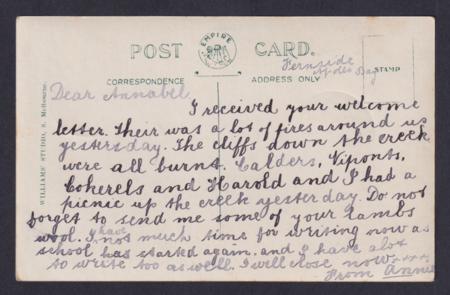 EMPIRE
POST CARD.
CORRESPONDENCE
ADDRESS ONLY
STAMP
WILLIAMS' STUDIO, S. Melbourne.
Fernside
Dear Annabel
I received your welcome
letter. Their was a lot of fires around us
yesterday. The cliffs down the creek
were all burnt. Calders, Viponts,
Coherels and Harold and I had a
picnic up the creek yesterday. Do not
forget to send me some of your lambs
wool. I have not much time for writing now as
school has started again. and I have alot
to write too as well. I will close now
From Annie